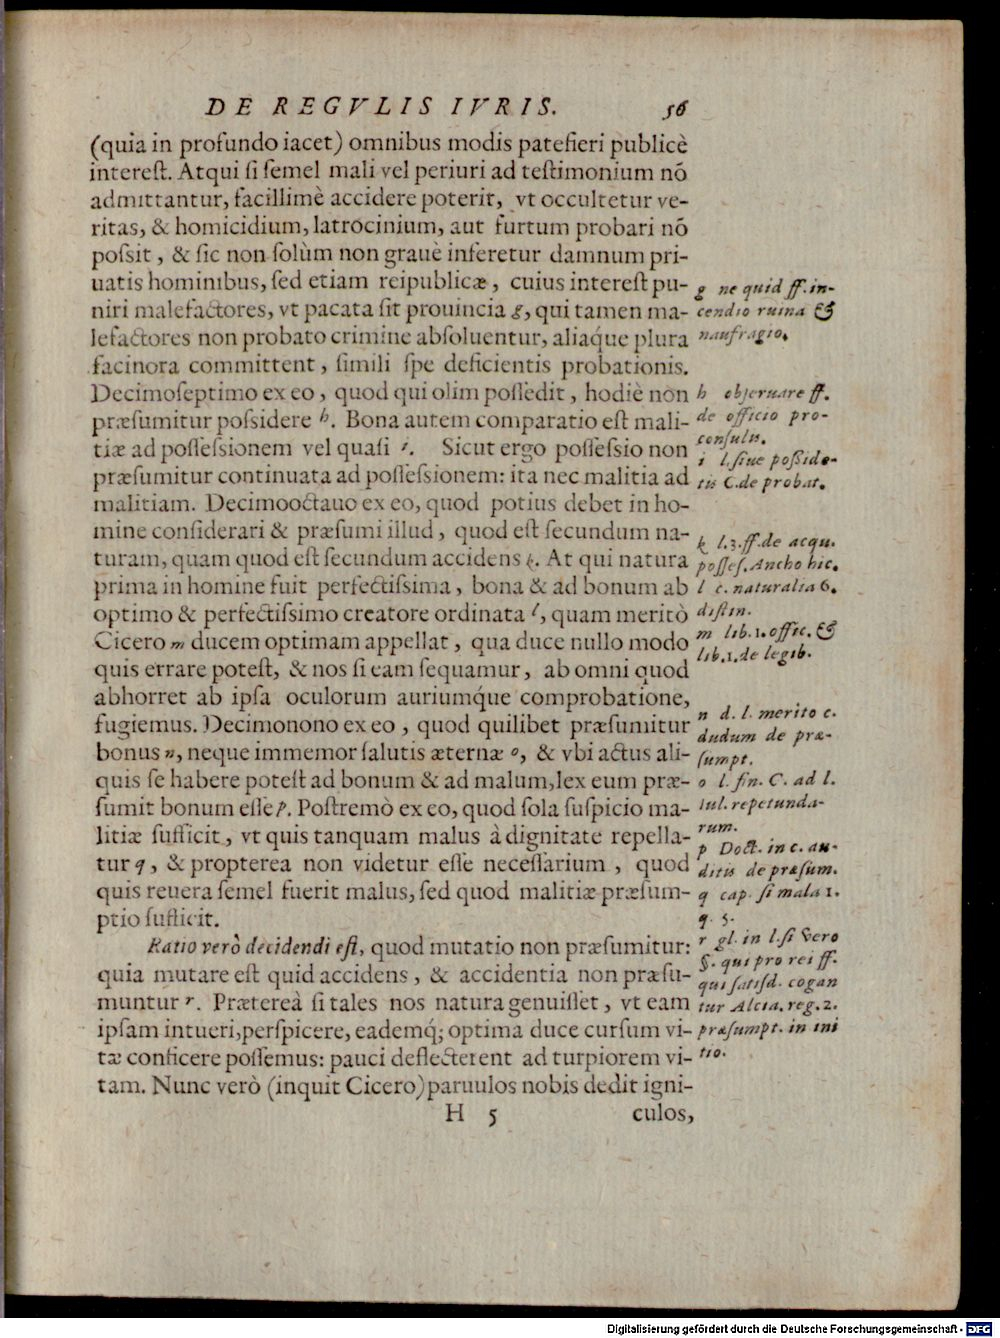 DE REGVLIS IVRIS. 56
(quia in profundo iacet) omnibus modis patefieri publicè
interest. Atqui si semel mali vel periuri ad testimonium nō
admittantur, facillimè accidere poterit, vt occultetur ve-
ritas, & homicidium, latrocinium, aut furtum probari nō
possit, & sic non solùm non grauè inferetur damnum pri-
uatis hominibus, sed etiam reipublicæ, cuius interest pu-
niri malefactores, vt pacata sit prouincia g, qui tamen ma-
lefactores non probato crimine absoluentur, aliaq́ue plura
facinora committent, simili spe deficientis probationis.
Decimoseptimo ex eo, quod qui olim possedit, hodiè non
præsumitur possidere h. Bona autem comparatio est mali-
tiæ ad possessionem vel quasi i. Sicut ergo possessio non
præsumitur continuata ad possessionem: ita nec malitia ad
malitiam. Decimooctauo ex eo, quod potius debet in ho-
mine considerari & præsumi illud, quod est secundum na-
turam, quam quod est secundum accidens k. At qui natura
prima in homine fuit perfectissima, bona & ad bonum ab
optimo & perfectissimo creatore ordinata l, quam meritò
Cicero m ducem optimam appellat, qua duce nullo modo
quis errare potest, & nos si eam sequamur, ab omni quod
abhorret ab ipsa oculorum auriumq́ue comprobatione,
fugiemus. Decimonono ex eo, quod quilibet præsumitur
bonus n, neque immemor salutis æternæ o, & vbi actus ali-
quis se habere potest ad bonum & ad malum, lex eum præ-
sumit bonum esse p. Postremò ex eo, quod sola suspicio ma-
litiæ sufficit, vt quis tanquam malus à dignitate repella-
tur q, & propterea non videtur esse necessarium, quod
quis reuera semel fuerit malus, sed quod malitiæ præsum-
ptio sufficit.
Ratio verò decidendi est, quod mutatio non præsumitur:
quia mutare est quid accidens, & accidentia non præsu-
muntur r. Prætereà si tales nos natura genuisset, vt eam
ipsam intueri, perspicere, eademq́; optima duce cursum vi-
tæ conficere possemus: pauci deflecterent ad turpiorem vi-
tam. Nunc verò (inquit Cicero) paruulos nobis dedit igni-
H 5 culos,
g ne quid ff. in-
cendio ruina &
naufragio.
h obseruare ff.
de officio pro-
consulis.
i l. siue posside-
tis C. de probat.
k l. 3. ff. de acqu.
posses. Ancho hic.
l c. naturalia 6.
distin.
m lib. 1. offic. &
lib. 1. de legib.
n d. l. merito c.
dudum de præ-
sumpt.
o l. fin. C. ad l.
Iul. repetunda-
rum.
p Doct. in c. au-
ditis de præsum.
q cap. si mala 1.
q. 5.
r gl. in l. si vero
§. qui pro rei ff.
qui satisd. cogan
tur Alcia. reg. 2.
præsumpt. in ini
tio.
Digitalisierung gefördert durch die Deutsche Forschungsgemeinschaft - DFG